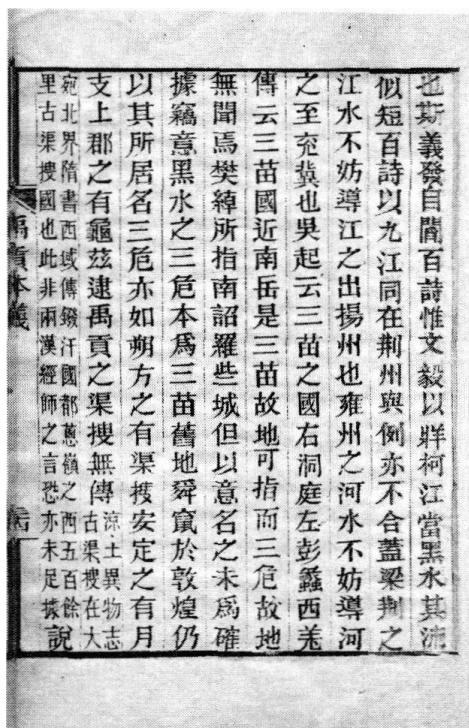 也斯義發自閻百詩惟文毅以牂柯江當黑水其流
似短百詩以九江同在荆州與例亦不合蓋梁荆之
江水不妨導江之出揚州也雍州之河水不妨導河
之至兗冀也吳起云三苗之國右洞庭左彭蠡西羌
傳云三苗國近南岳是三苗故地可指而三危故地
無聞焉樊綽所指南詔羅些城但以意名之未爲確
據竊意黑水之三危本爲三苗舊地舜竄於敦煌仍
以其所居名三危亦如朔方之有渠搜安定之有月
支上郡之有龜玆逮禹貢之渠搜無傳涼土異物志古渠搜在大
宛北界隋書西域傳鏺汗國都蔥嶺之西五百餘里古渠搜國也此非兩漢經師之言恐亦未足據說
禹貢本義